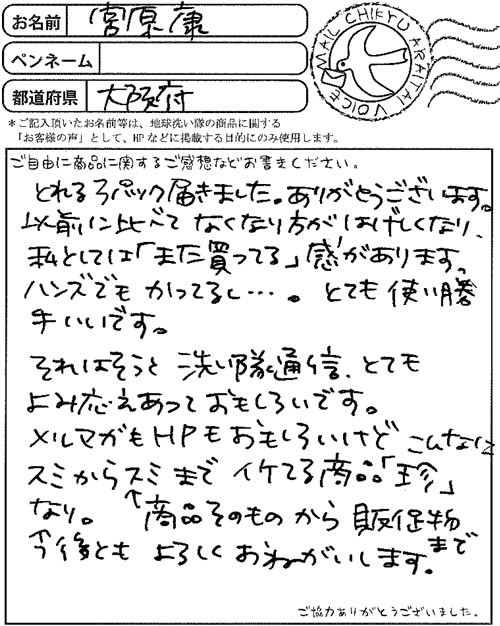 お名前 宮原康
ペンネーム
都道府県 大阪府
MAIL CHIEYU ARAITAI VOICE
＊ご記入頂いたお名前等は、地球洗い隊の商品に関する
「お客様の声」として、HPなどに掲載する目的にのみ使用します。
ご自由に商品に関するご感想などお書きください。
とれるNo.1パック届きました。ありがとうございます。
以前に比べて なくなり方がはげしくなり、
私としては「また買ってる」感があります。
ハンズでも かってるし…。とても使い勝
手いいです。
それはそうと 洗い隊通信、とても
よみ応えあっておもしろいです。
メルマガもHPもおもしろいけど こんなに
スミからスミまで イケてる商品「珍」
なり。↑商品そのものから 販促物まで
↑今後とも よろしく おねがいします。
ご協力ありがとうございました。